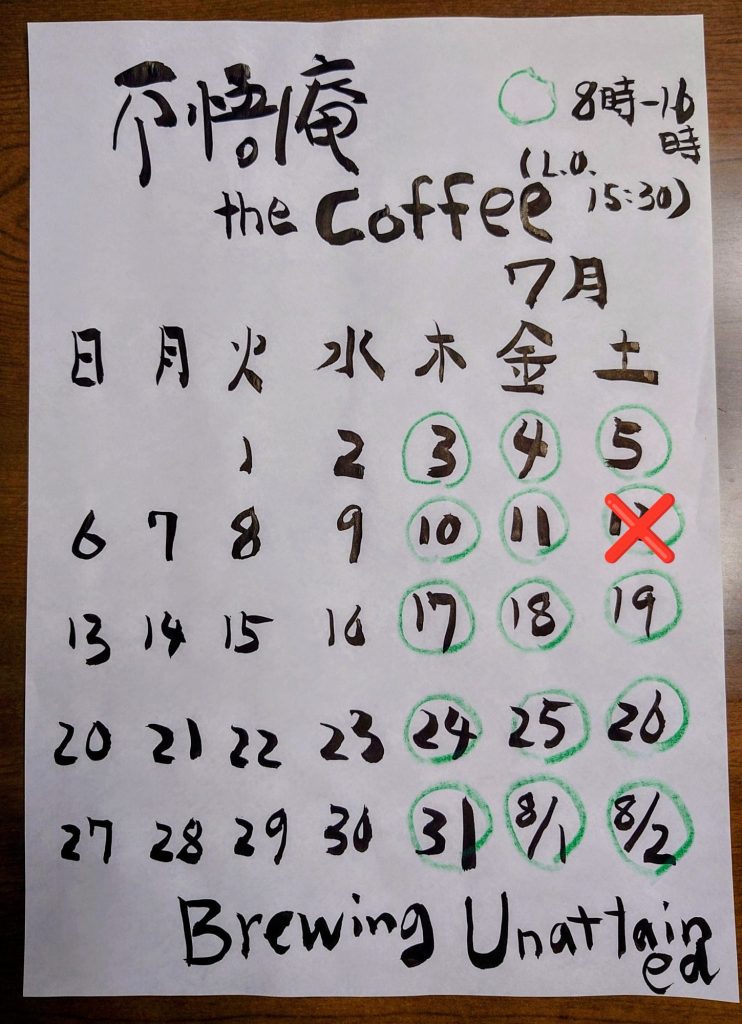 不悟庵
the Coffee
8時-16時
(L.O. 15:30)
7月
日 月 火 水 木 金 土
1 2 3 4 5
6 7 8 9 10 11 12
13 14 15 16 17 18 19
20 21 22 23 24 25 26
27 28 29 30 31 8/1 8/2
Brewing Unattained